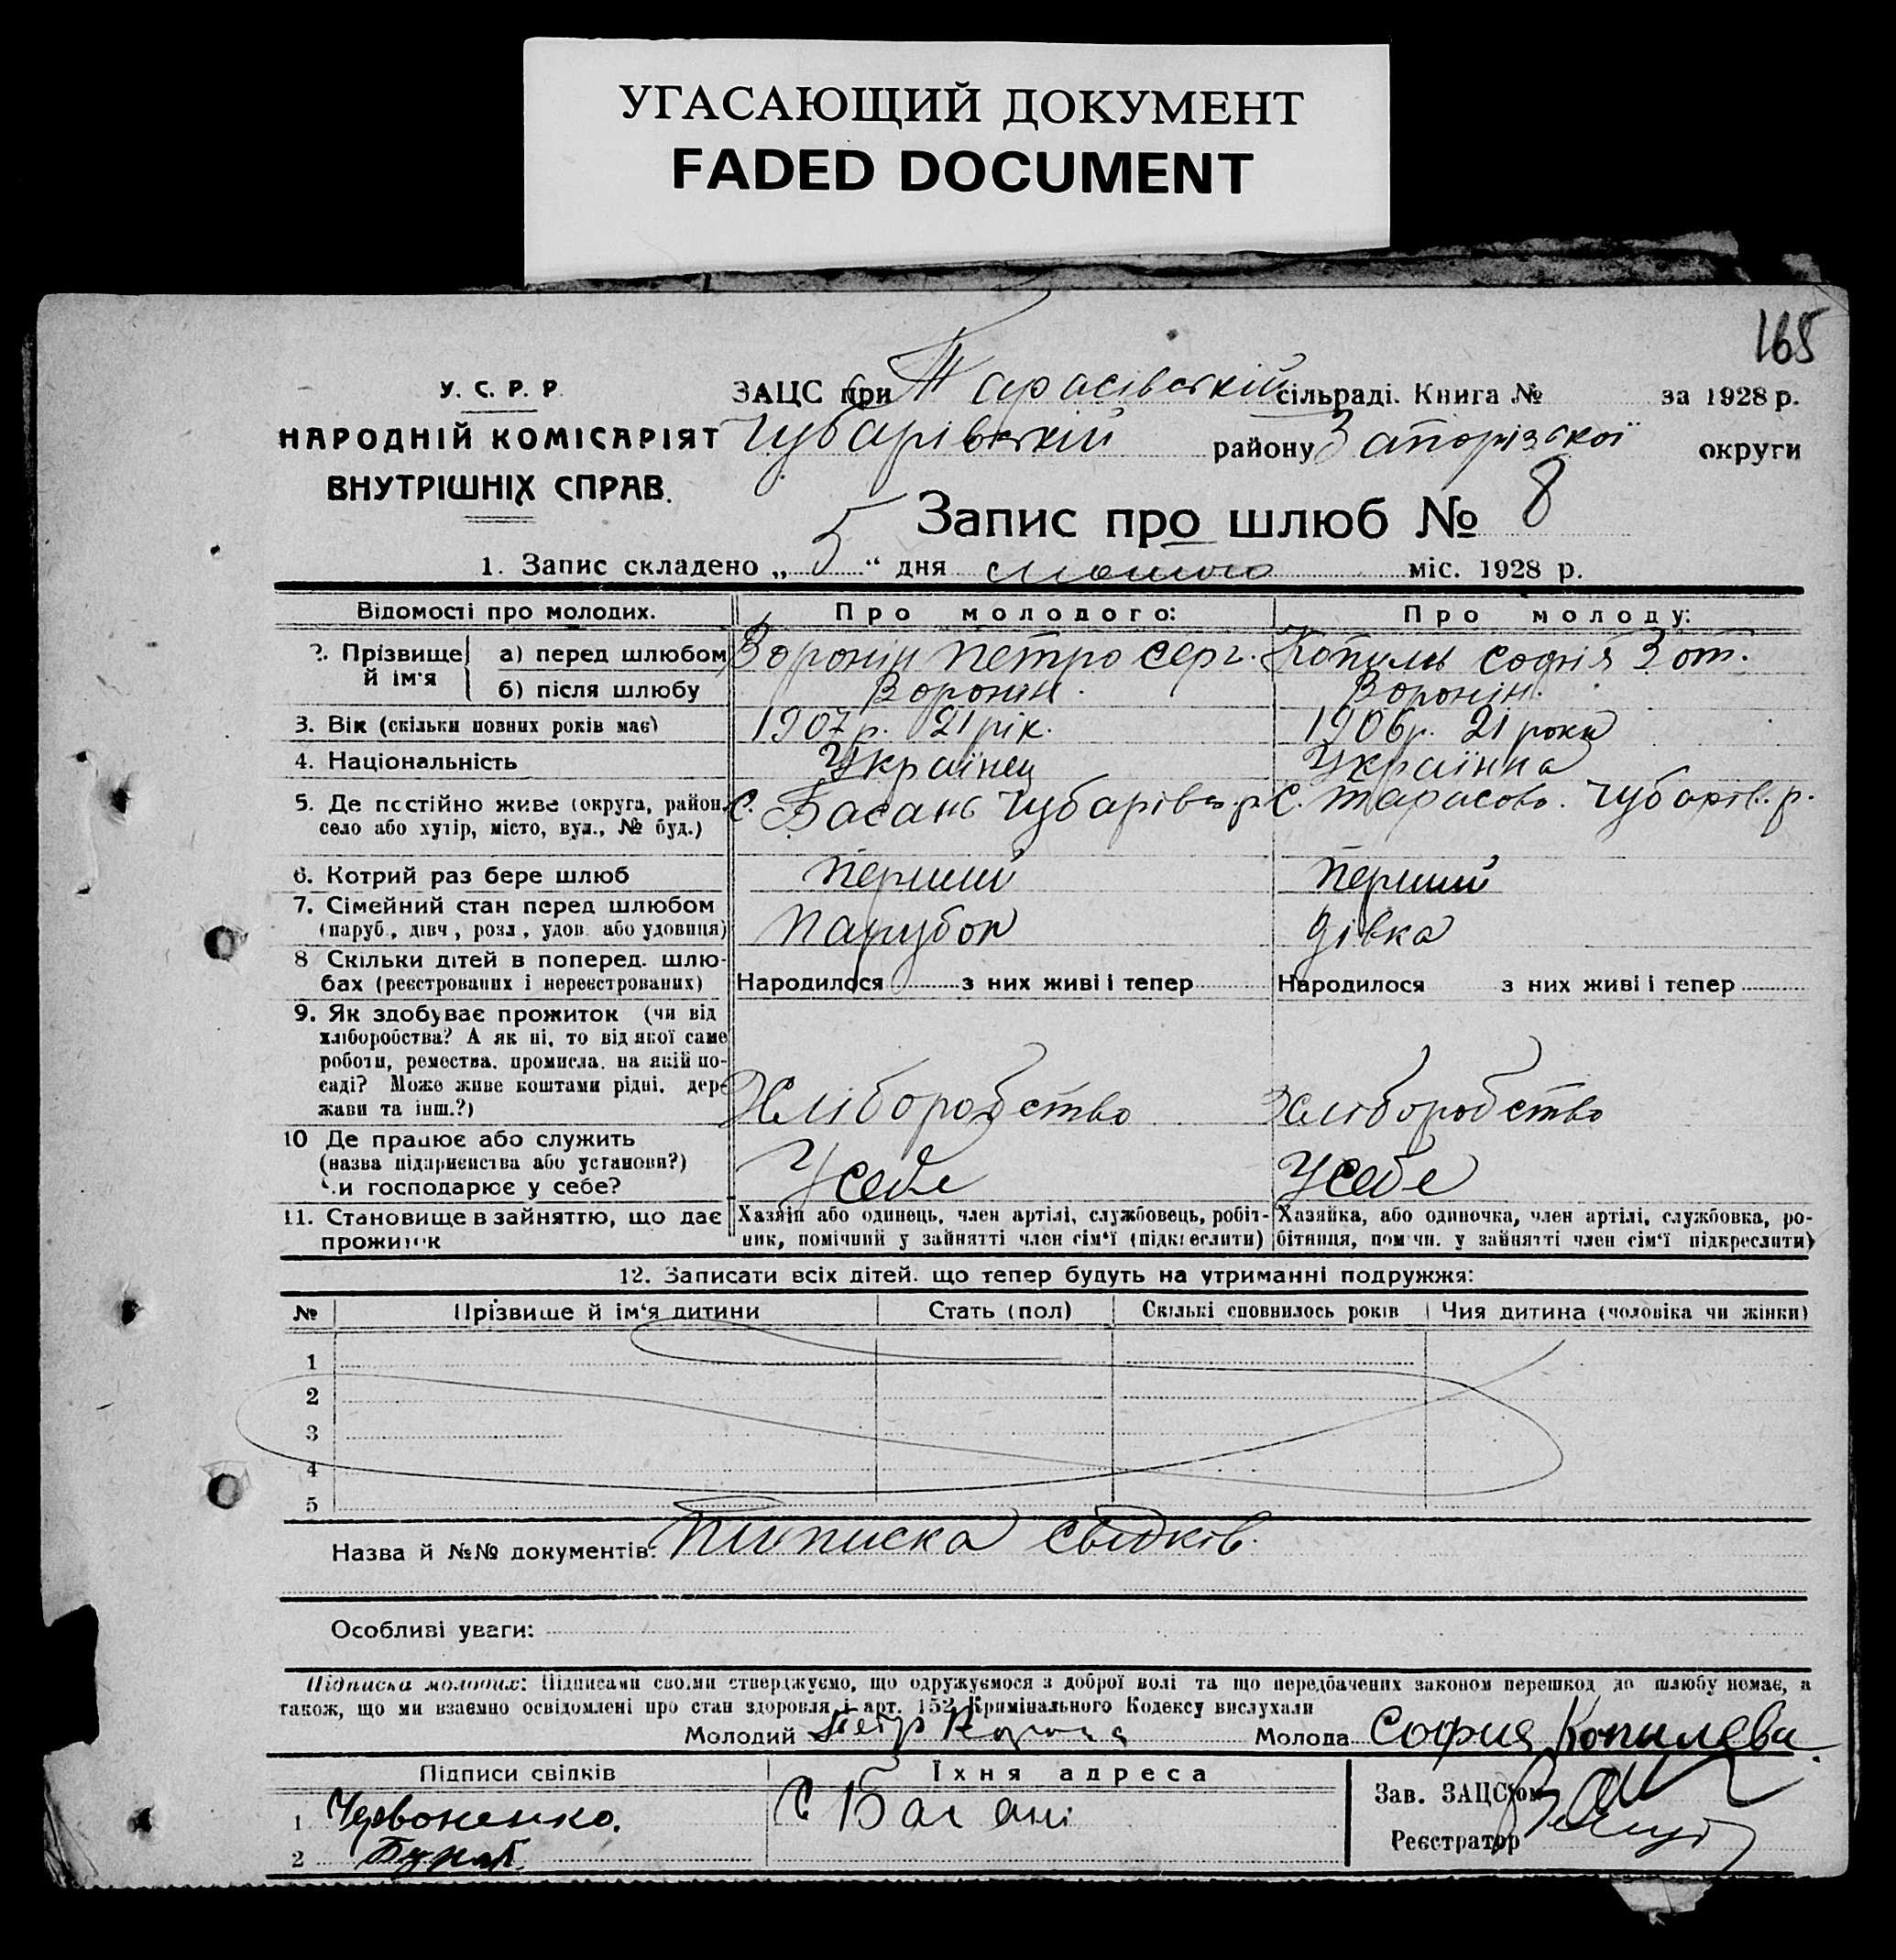 УГАСАЮЩИЙ ДОКУМЕНТ
FADED DOCUMENT
165
У. С. Р. Р.
НАРОДНІЙ КОМІСАРІЯТ
ВНУТРІШНІХ СПРАВ.
ЗАЦС при Тарасівській сільраді. Книга № за 1928 р.
Чубарівській району Запорізскої округи
Запис про шлюб № 8
1. Запис складено „ 5 “ дня лютого міс. 1928 р.
Відомості про молодих. Про молодого: Про молоду:
2. Прізвище й ім'я а) перед шлюбом Воронін Петро Серг. Копиль Софія Зот.
б) після шлюбу Воронін. Воронін.
3. Вік (скільки повних років має) 1907 р. 21 рік. 1906 р. 21 рока
4. Національність Українец Українка
5. Де постійно живе (округа, район, С. Басань Чубарівс. р. С. Тарасово. Чубарів. р.
село або хутір, місто, вул., № буд.)
6. Котрий раз бере шлюб Перший Перший
7. Сімейний стан перед шлюбом Парубок дівка
(паруб., дівч., розл., удов. або удовиця)
8 Скільки дітей в поперед. шлю-
бах (реєстрованих і нереєстрованих) Народилося з них живі і тепер Народилося з них живі і тепер
9. Як здобуває прожиток (чи від
хліборобства? А як ні, то від якої саме
роботи, ремества, промисла, на якій по-
саді? Може живе коштами рідні, дер-
жави та інш.?) Хліборобство Хліборобство
10 Де працює або служить
(назва підприємства або установи?)
Чи господарює у себе? У себе У себе
11. Становище в зайняттю, що дає Хазяїн або одинець, член артілі, службовець, робіт- Хазяйка, або одиночка, член артілі, службовка, ро-
прожиток ник, помічний у зайнятті член сім'ї (підкреслити) бітниця, помічн. у зайнятті член сім'ї підкреслити)
12. Записати всіх дітей, що тепер будуть на утриманні подружжя:
№ Прізвище й ім'я дитини Стать (пол) Скількі сповнилось років Чия дитина (чоловіка чи жінки)
1
2
3
4
5
Назва й №№ документів: Підписка свідків.
Особливі уваги:
Підписка молодих: Підписами своїми стверджуємо, що одружуємося з доброї волі та що передбачених законом перешкод до шлюбу немає, а
також, що ми взаємно освідомлені про стан здоровля і арт. 152 Кримінального Кодексу вислухали
Молодий Петр Молода София Копилева.
Підписи свідків Їхня адреса
1 Червоненко. С Басані
2
Зав. ЗАЦСом
Реєстратор